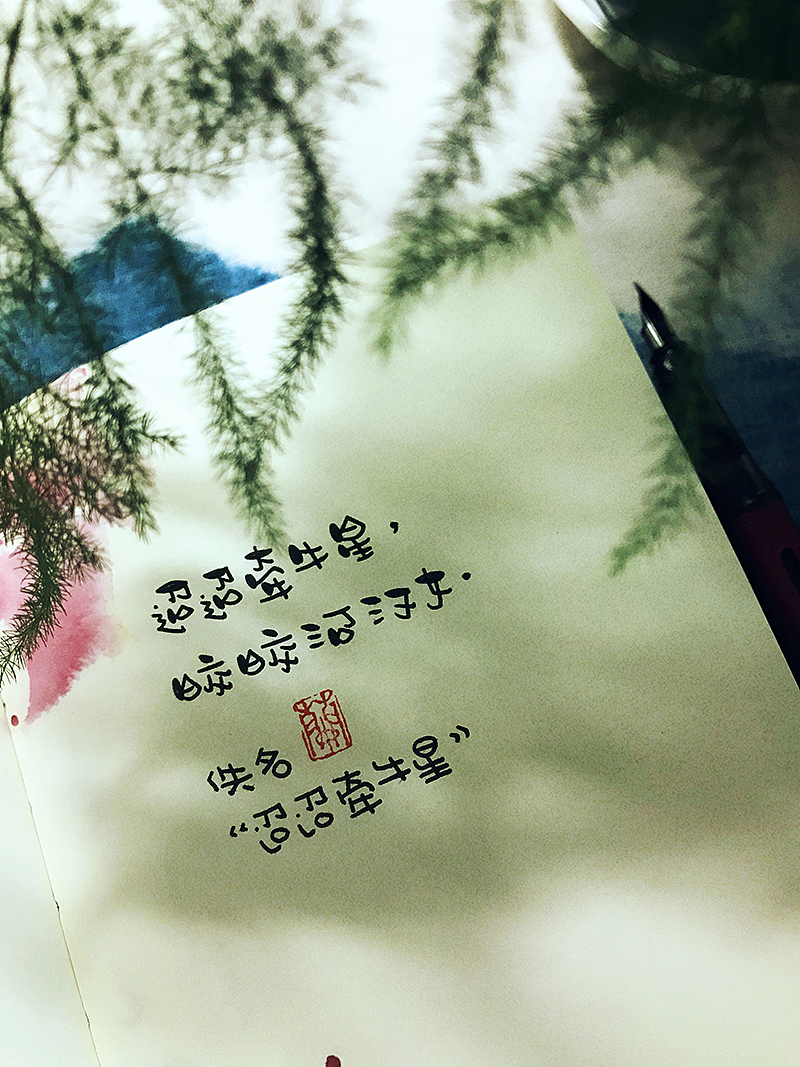 迢迢牵牛星,
皎皎河汉女.
佚名
“迢迢牵牛星”